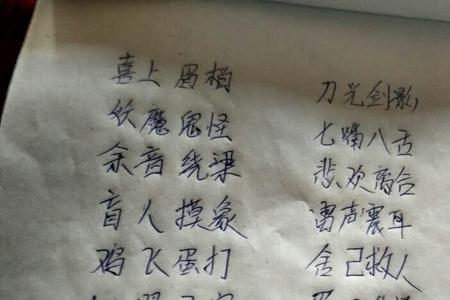 喜上眉梢
妖魔鬼怪
余音绕梁
盲人摸象
鸡飞蛋打
刀光剑影
七嘴八舌
悲欢离合
雷声震耳
舍己救人